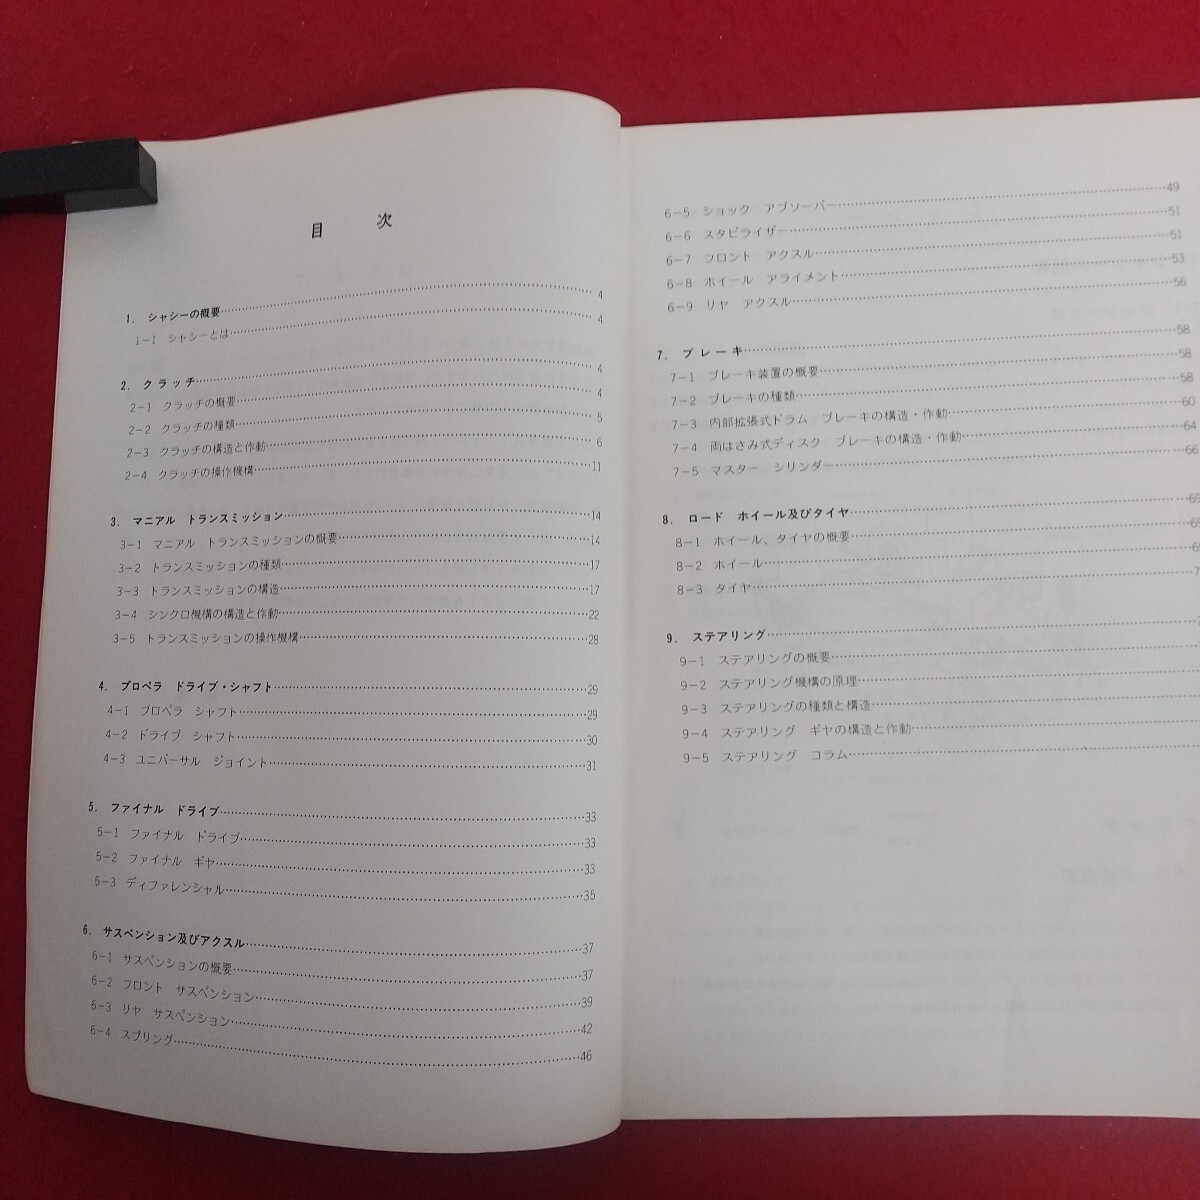 目次
1. シャシーの概要……4
1-1 シャシーとは……4
2. クラッチ……4
2-1 クラッチの概要……4
2-2 クラッチの種類……5
2-3 クラッチの構造と作動……6
2-4 クラッチの操作機構……11
3. マニアル トランスミッション……14
3-1 マニアル トランスミッションの概要……14
3-2 トランスミッションの種類……17
3-3 トランスミッションの構造……17
3-4 シンクロ機構の構造と作動……22
3-5 トランスミッションの操作機構……28
4. プロペラ ドライブ・シャフト……29
4-1 プロペラ シャフト……29
4-2 ドライブ シャフト……30
4-3 ユニバーサル ジョイント……31
5. ファイナル ドライブ……33
5-1 ファイナル ドライブ……33
5-2 ファイナル ギヤ……33
5-3 ディファレンシャル……35
6. サスペンション及びアクスル……37
6-1 サスペンションの概要……37
6-2 フロント サスペンション……39
6-3 リヤ サスペンション……42
6-4 スプリング……46
6-5 ショック アブソーバー……49
6-6 スタビライザー……51
6-7 フロント アクスル……51
6-8 ホイール アライメント……53
6-9 リヤ アクスル……56
7. ブレーキ……58
7-1 ブレーキ装置の概要……58
7-2 ブレーキの種類……58
7-3 内部拡張式ドラム ブレーキの構造・作動……60
7-4 両はさみ式ディスク ブレーキの構造・作動……64
7-5 マスター シリンダー……66
8. ロード ホイール及びタイヤ……69
8-1 ホイール、タイヤの概要……69
8-2 ホイール……
8-3 タイヤ……
9. ステアリング……
9-1 ステアリングの概要……
9-2 ステアリング機構の原理……
9-3 ステアリングの種類と構造……
9-4 ステアリング ギヤの構造と作動……
9-5 ステアリング コラム……